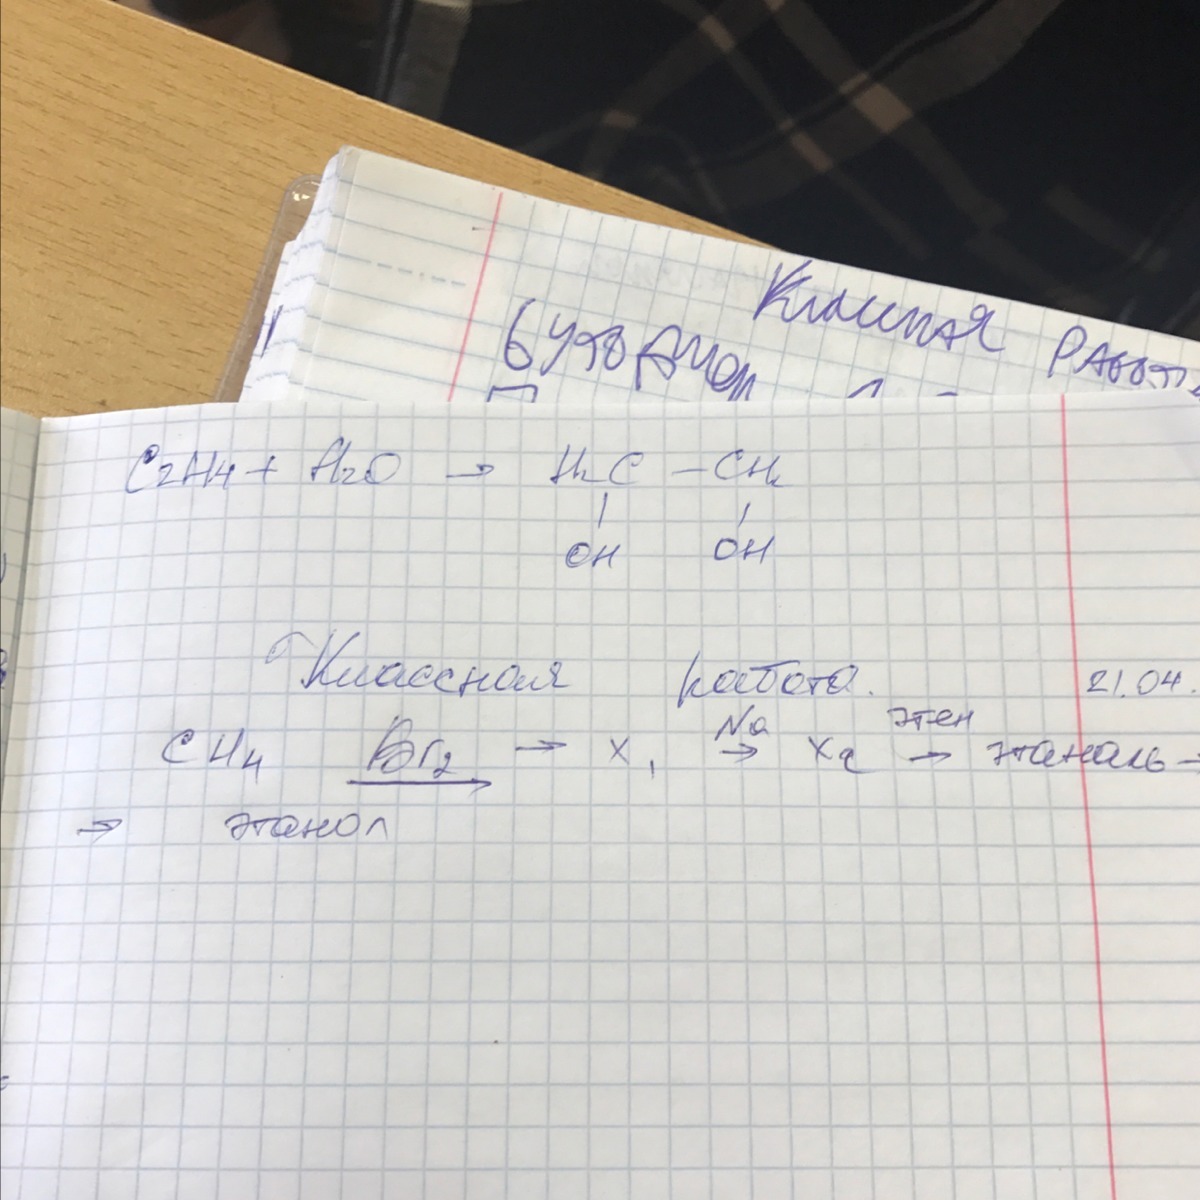 Классная Работа
Бутадиен
C2H4 + H2O → H2C – CH2
OH OH
Классная работа. 21.04.
CH4 Br2 → X1 Na → X2 этен → этаналь →
→ этанол